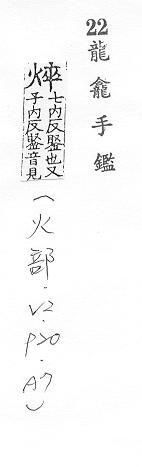 22 龍龕手鑑
焠 七内反鋻也又
子内反鋻音見
(火部.V2.P20.A7)